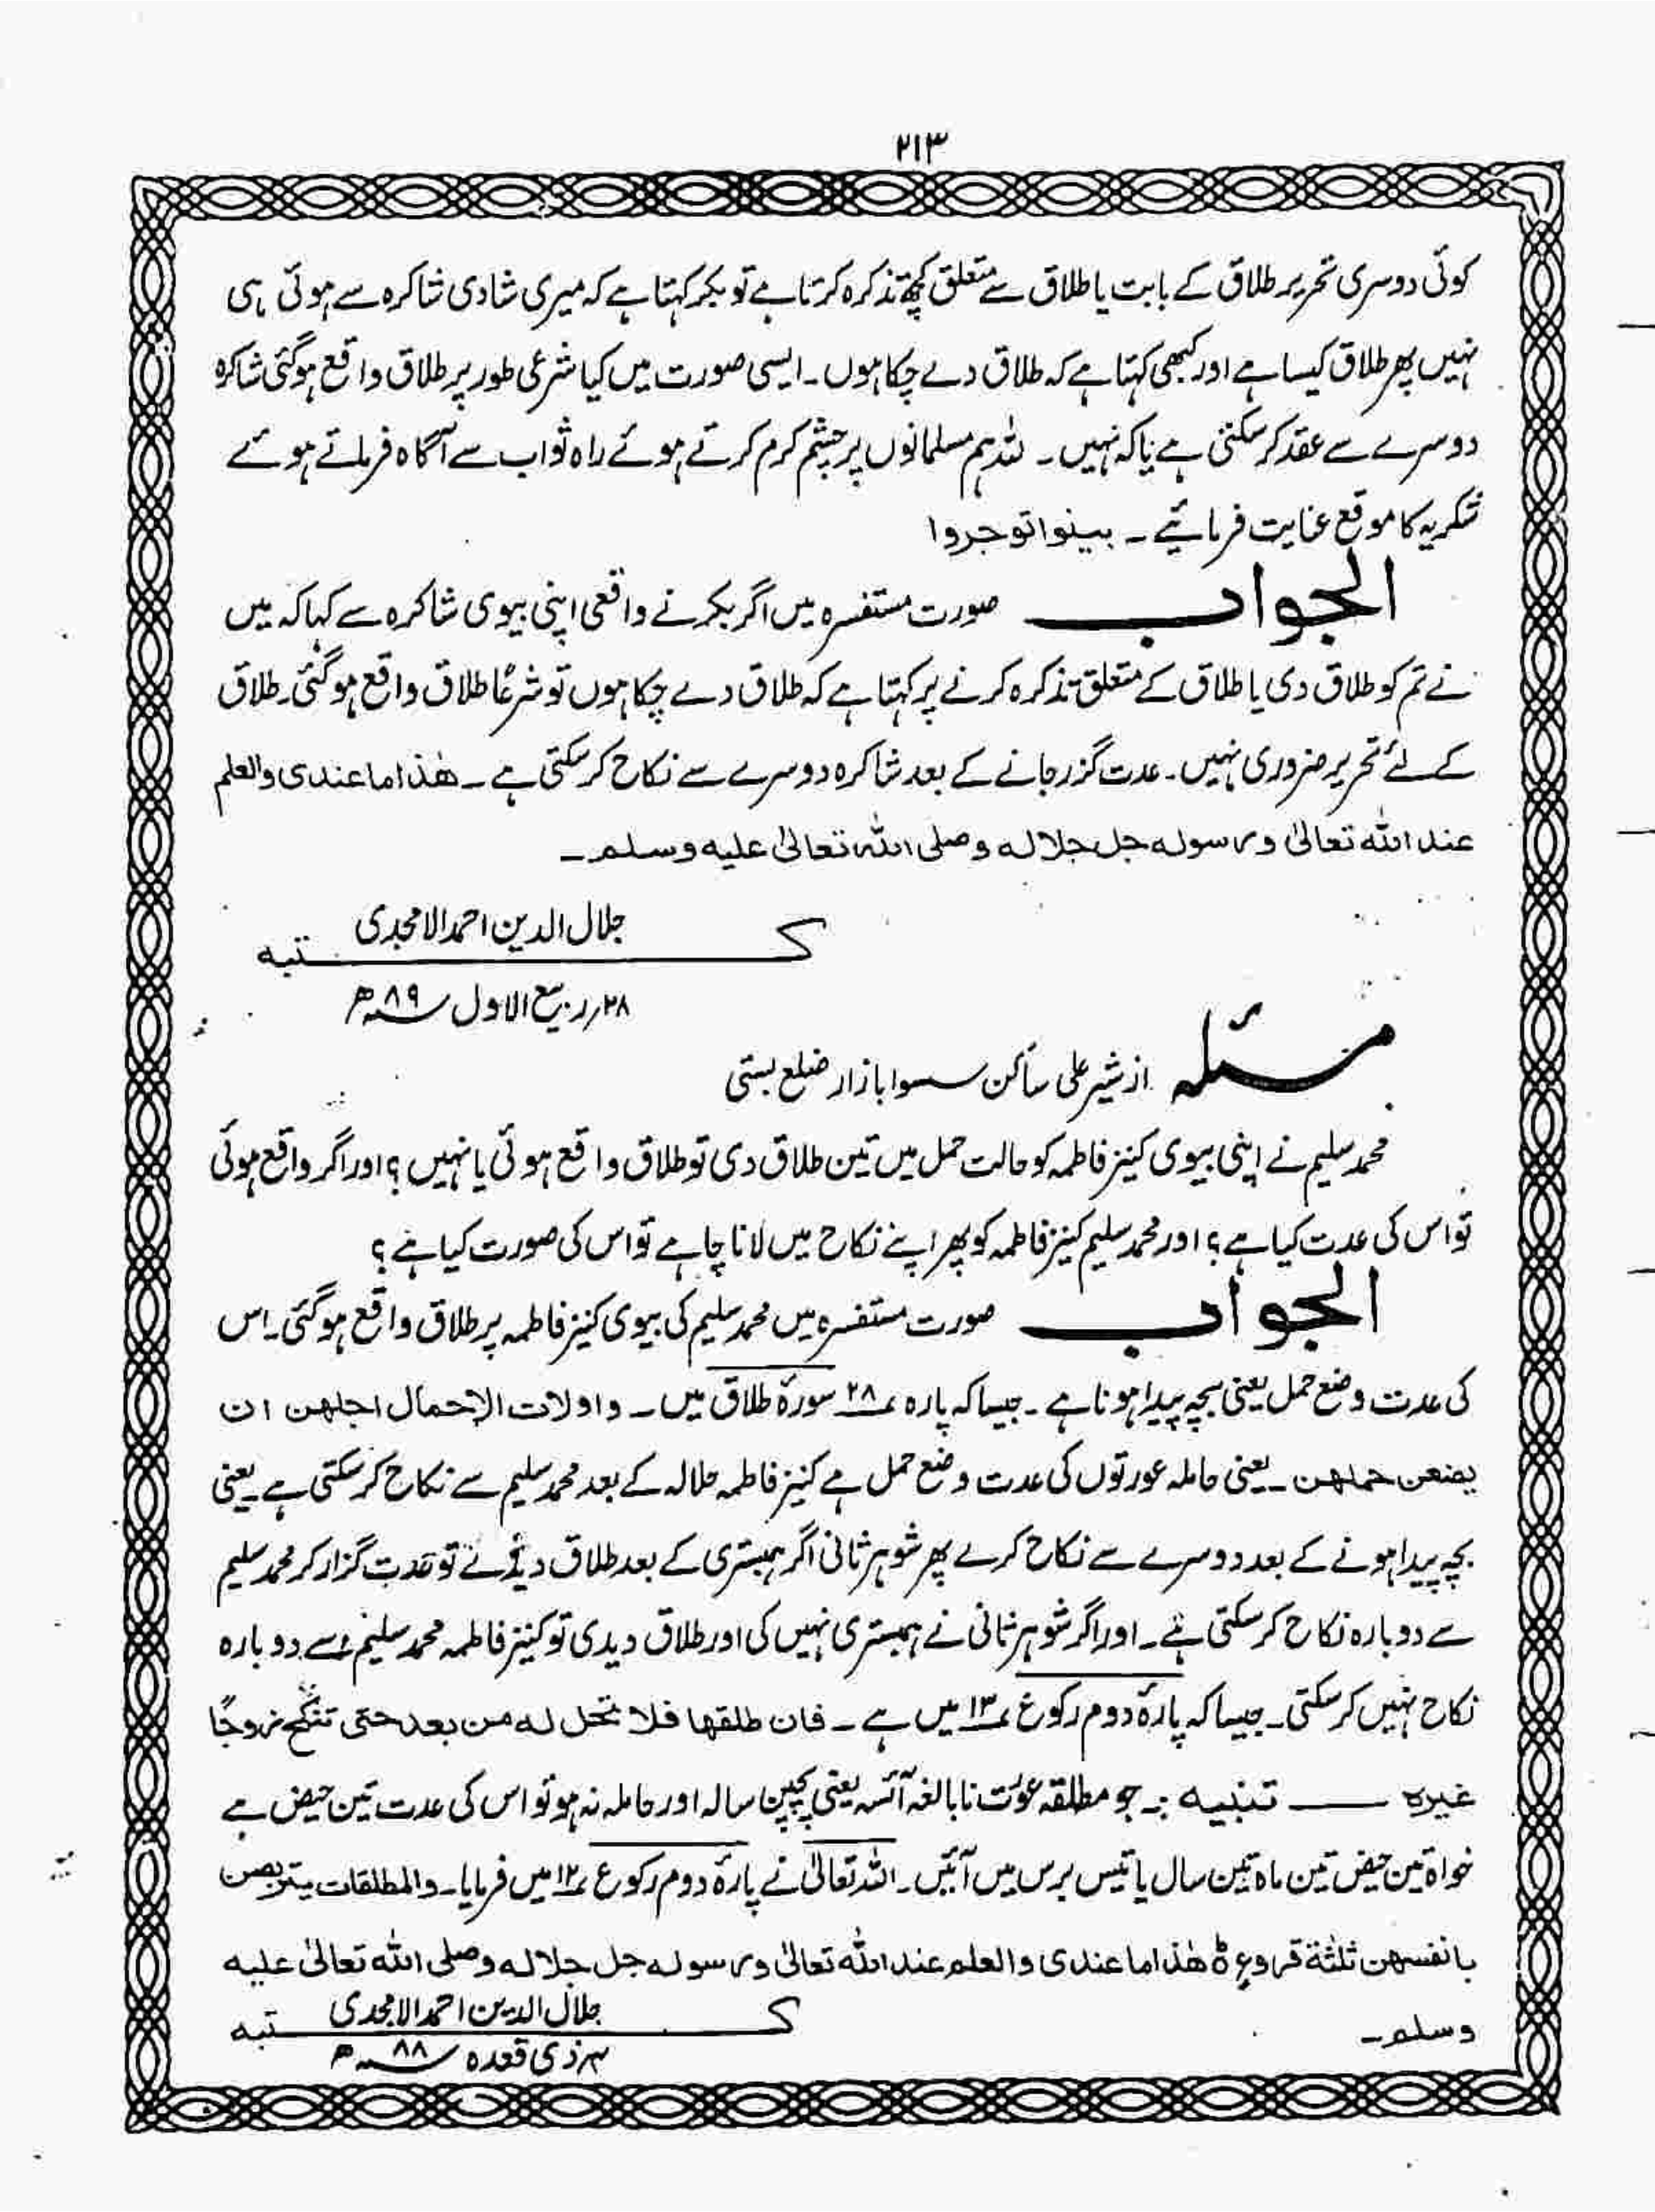 ۲۱۳
کوئی دوسری تحریر طلاق کے بابت یا طلاق سے متعلق کچھ تذکرہ کرتا ہے تو بکر کہتا ہے کہ میری شادی شاکرہ سے ہوئی ہی
نہیں پھر طلاق کیسا ہے اور کبھی کہتا ہے کہ طلاق دے چکا ہوں ۔ ایسی صورت میں کیا شرعی طور پر طلاق واقع ہوگئی شاکرہ
دوسرے سے عقد کر سکتی ہے یا کہ نہیں ۔ للہ ہم مسلمانوں پر چشم کرم کرتے ہوئے راہ ثواب سے آگاہ فرماتے ہوئے
شکریہ کا موقع عنایت فرمائیے ۔ بینوا توجروا
الجواب صورت مستفسرہ میں اگر بکر نے واقعی اپنی بیوی شاکرہ سے کہا کہ میں
نے تم کو طلاق دی یا طلاق کے متعلق تذکرہ کرنے پر کہتا ہے کہ طلاق دے چکا ہوں تو شرعًا طلاق واقع ہوگئی۔ طلاق
کے لئے تحریر ضروری نہیں ۔ عدت گزر جانے کے بعد شاکرہ دوسرے سے نکاح کر سکتی ہے ۔ ھٰذا ما عندی والعلم
عند اللہ تعالیٰ ورسولہ جل جلالہ وصلی اللہ تعالیٰ علیہ وسلم ۔
جلال الدین احمد الامجدی
کتبہ
۲۸؍ ربیع الاول ۸۹ھ
مسئلہ از شیر علی ساکن سسوا بازار ضلع بستی
محمد سلیم نے اپنی بیوی کنیز فاطمہ کو حالت حمل میں تین طلاق دی تو طلاق واقع ہوئی یا نہیں ؟ اور اگر واقع ہوئی
تو اس کی عدت کیا ہے ؟ اور محمد سلیم کنیز فاطمہ کو پھر اپنے نکاح میں لانا چاہے تو اس کی صورت کیا ہے ؟
الجواب صورت مستفسرہ میں محمد سلیم کی بیوی کنیز فاطمہ پر طلاق واقع ہوگئی۔ اس
کی عدت وضع حمل یعنی بچہ پیدا ہونا ہے ۔ جیسا کہ پارہ ۲۸ سورۂ طلاق میں ۔ واولات الاحمال اجلھن ان
یضعن حملھن ۔ یعنی حاملہ عورتوں کی عدت وضع حمل ہے کنیز فاطمہ حلالہ کے بعد محمد سلیم سے نکاح کر سکتی ہے۔ یعنی
بچہ پیدا ہونے کے بعد دوسرے سے نکاح کرے پھر شوہر ثانی اگر ہمبستری کے بعد طلاق دیدے تو عدت گزار کر محمد سلیم
سے دوبارہ نکاح کر سکتی ہے ۔ اور اگر شوہر ثانی نے ہمبستری نہیں کی اور طلاق دیدی تو کنیز فاطمہ محمد سلیم سے دوبارہ
نکاح نہیں کر سکتی ۔ جیسا کہ پارۂ دوم رکوع ۱۳ میں ہے ۔ فان طلقھا فلا تحل لہ من بعد حتی تنکح زوجًا
غیرہ ـــــ تنبیہ :۔ جو مطلقہ عورت نابالغہ آئسہ یعنی پچپن سالہ اور حاملہ نہ ہو تو اس کی عدت تین حیض ہے
خواہ تین حیض تین ماہ تین سال یا تیس برس میں آئیں ۔ اللہ تعالیٰ نے پارۂ دوم رکوع ۱۲ میں فرمایا ۔ والمطلقات یتربصن
بانفسھن ثلٰثۃ قروءٍ ط ھٰذا ما عندی والعلم عند اللہ تعالیٰ ورسولہ جل جلالہ وصلی اللہ تعالیٰ علیہ
وسلم ۔
جلال الدین احمد الامجدی
کتبہ
۴؍ ذی قعدہ ۸۸ھ